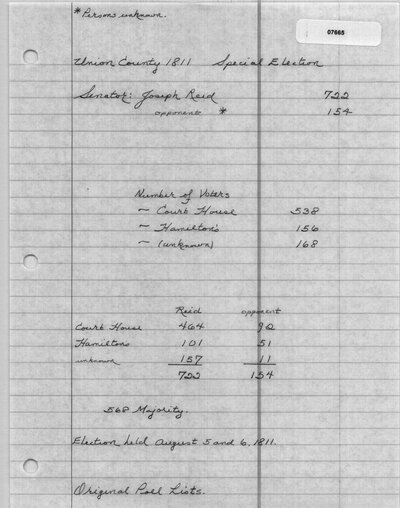 * Persons unknown.
07665
Union County 1811 Special Election
Senator: Joseph Reid 722
opponent * 154
Number of Voters
- Court House 538
- Hamilton's 156
- (unknown) 168
Reid opponent
Court House 464 92
Hamiltons 101 51
unknown 157 11
722 154
568 Majority.
Election held August 5 and 6, 1811.
Original Poll Lists.